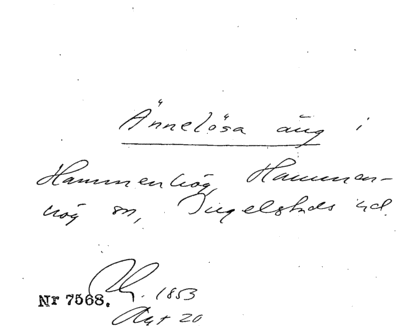 Ännelösa äng i
Hammenhög, Hammen-
hög sn, Ingelstads hd.
1853
Nr 7568.
Akt 20